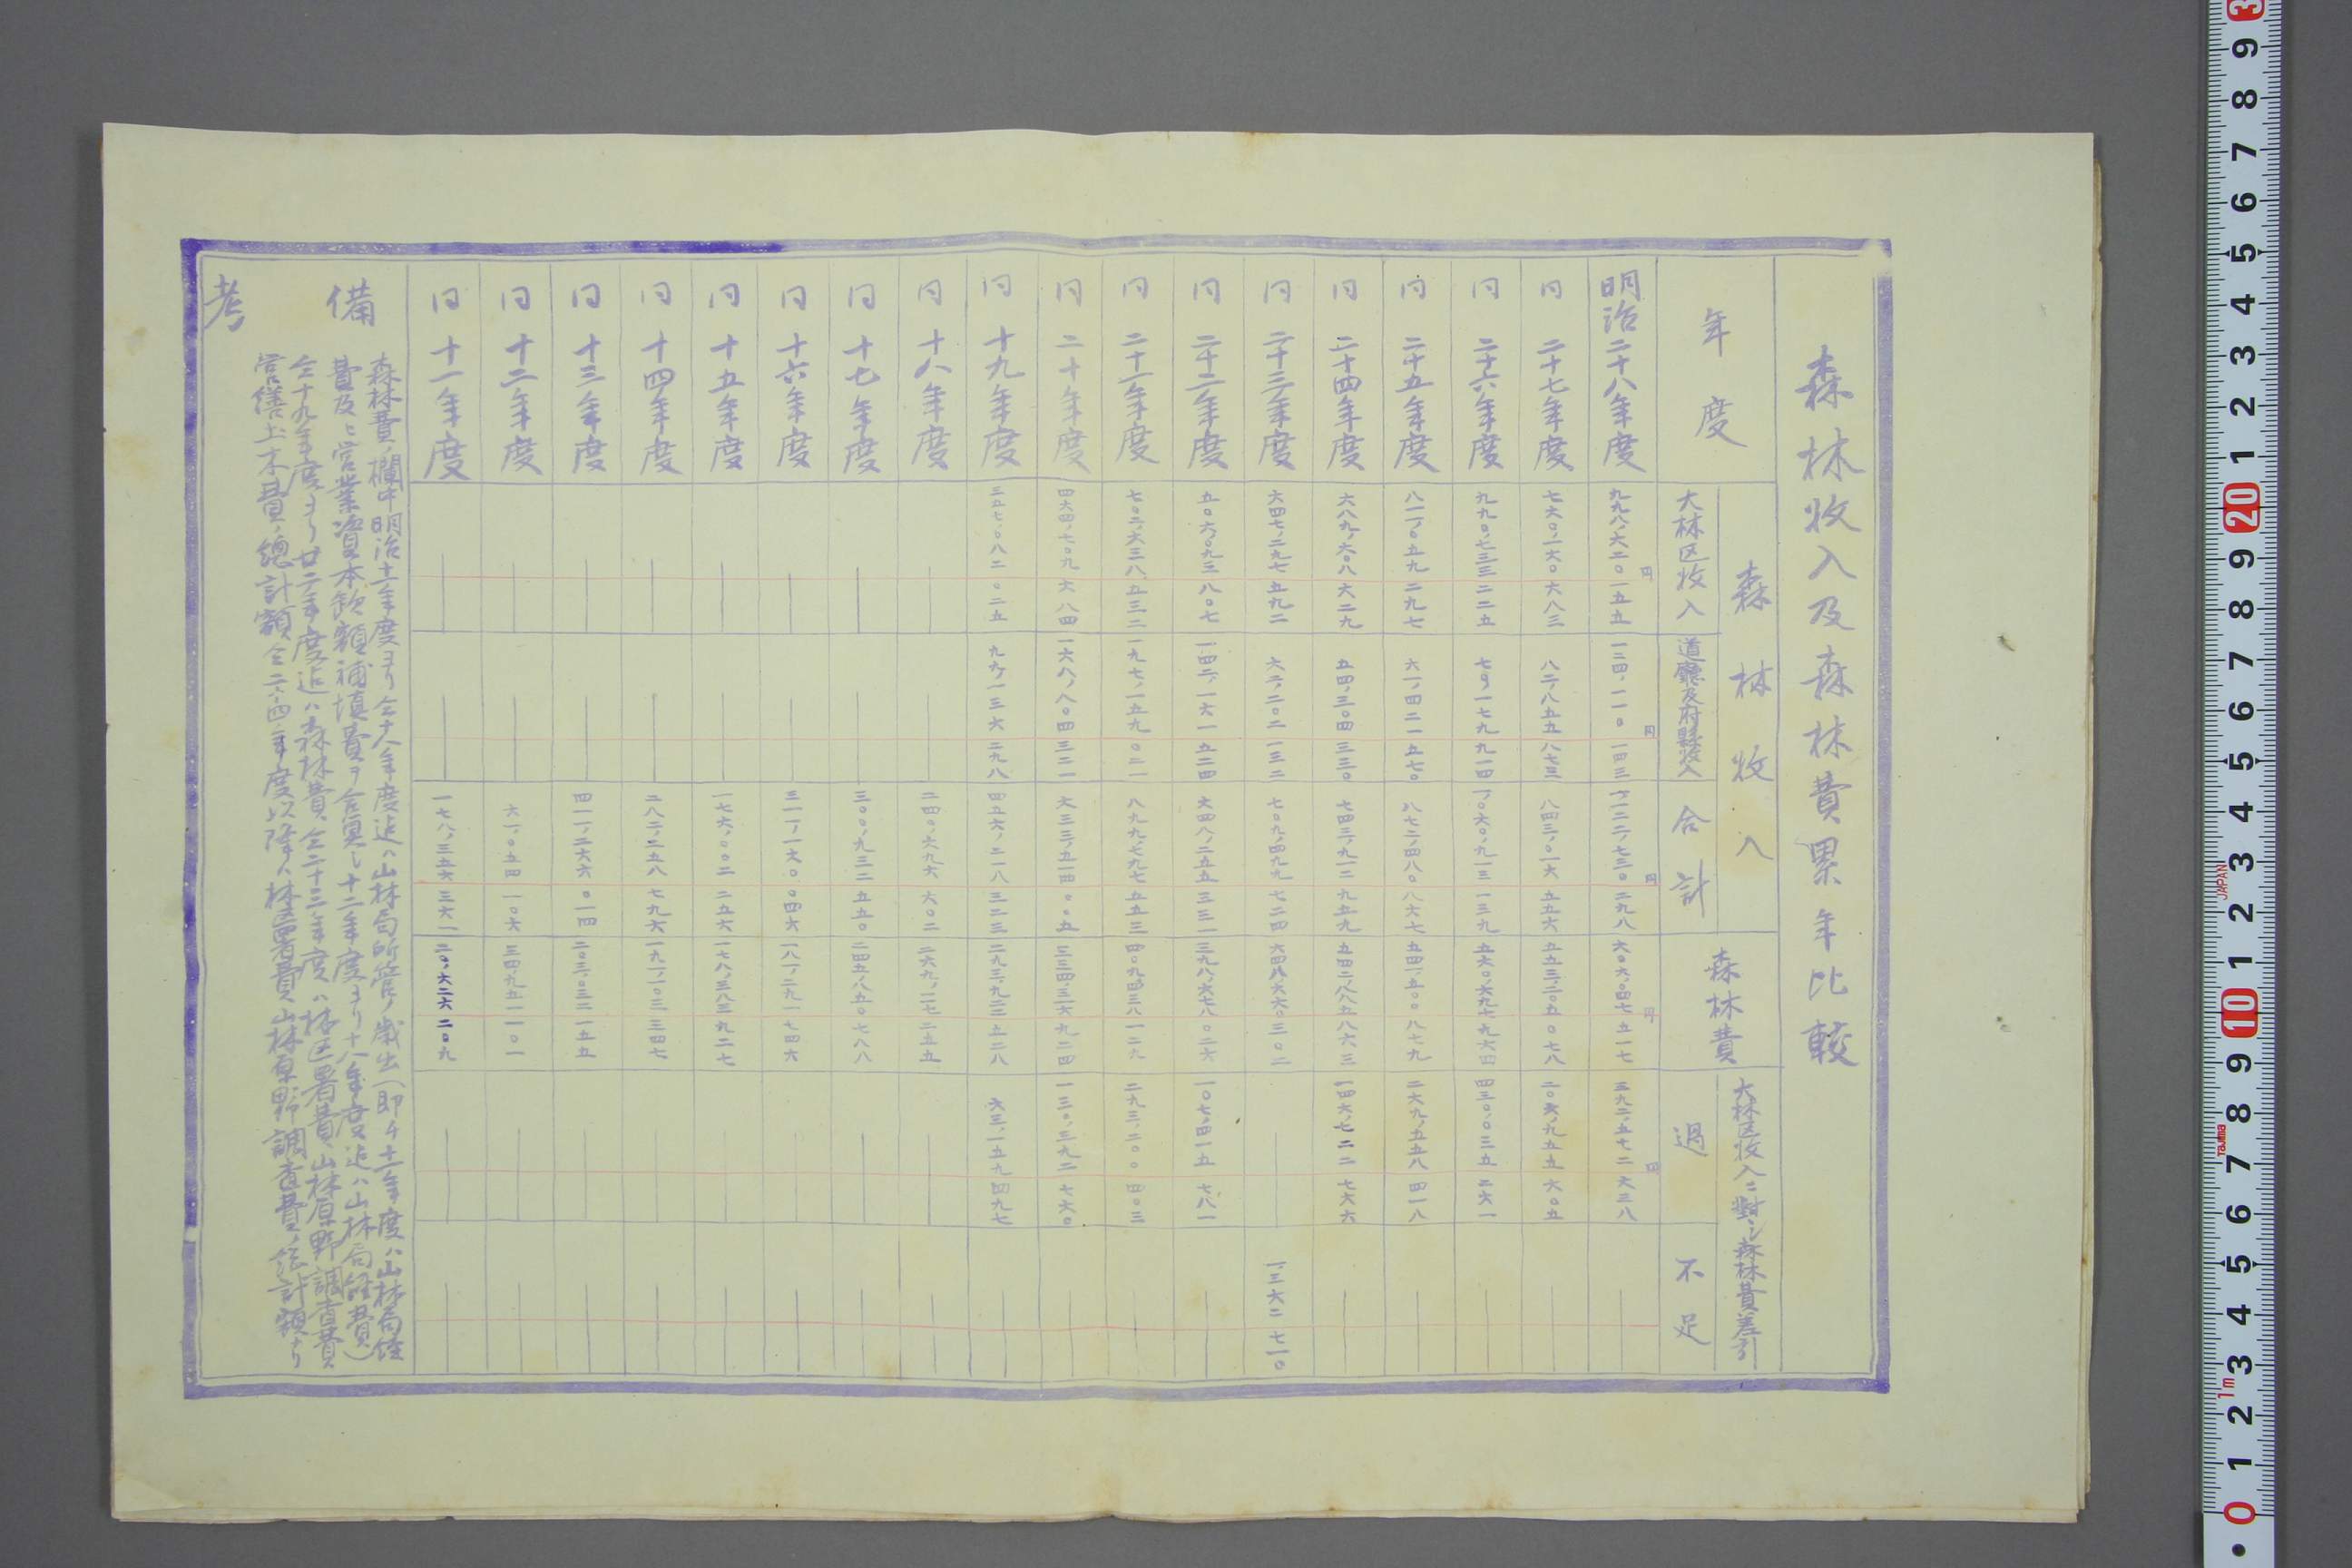 森林收入及森林費累年比較
年度
森林收入
大林区收入
道廳及府縣收入
合計
森林費
大林区收入ニ對シ森林費差引
過
不足
明治二十八年度 九九八,六二〇 一五五 一二四,一一〇 一四三 一,一二二,七三〇 二九八 六〇六,〇四七 五一七 三九二,五七二 六三八
円 円 円 円 円
同二十七年度 七六〇,一六〇 六八三 八二,八五五 八七三 八四三,〇一六 五五六 五五三,二〇五 〇七八 二〇六,九五五 六〇五
同二十六年度 九九〇,七三三 二二五 七〇,一七九 九一四 一,〇六〇,九一三 一三九 五六〇,六九七 九六四 四三〇,〇三五 二六一
同二十五年度 八一一,〇五九 二九七 六一,四二一 五七〇 八七二,四八〇 八六七 五四一,五〇〇 八七九 二六九,五五八 四一八
同二十四年度 六八九,六〇八 六二九 五四,三〇四 三三〇 七四三,九一二 九五九 五四二,八八五 八六三 一四六,七二二 七六六
同二十三年度 六四七,二九七 五九二 六二,二〇二 一三二 七〇九,四九九 七二四 六四八,六六〇 三〇二 一,三六二 七一〇
同二十二年度 五〇六,〇九三 八〇七 一四二,一六一 五二四 六四八,二五五 三三一 三九八,六七八 〇二六 一〇七,四一五 七八一
同二十一年度 七〇二,六三八 五三二 一九七,一五九 〇二一 八九九,七九七 五五三 四〇九,四三八 一二九 二九三,二〇〇 四〇三
同二十年度 四六四,七〇九 六八四 一六八,八〇四 三二一 六三三,五一四 〇〇五 三三四,三一六 九二四 一三〇,三九二 七六〇
同十九年度 三五七,〇八二 〇二五 九九,一三六 二九八 四五六,二一八 三二三 二九三,九二二 五二八 六三,一五九 四九七
同十八年度 二四〇,六九六 六〇二 二六九,一一七 二五五
同十七年度 三〇〇,九三二 五五〇 二四五,八五〇 七八八
同十六年度 三一一,一六〇 〇四六 一八一,二九一 七四六
同十五年度 一七六,〇〇二 二五六 一七八,三八三 九二七
同十四年度 二八二,二五八 七九六 一九一,一〇三 三四七
同十三年度 四一一,二六六 〇一四 二〇三,〇三二 一五五
同十二年度 六一,〇五四 一〇六 三四九五一 一〇一
同十一年度 一七八,三五六 三六一 二〇,六二六 二〇九
備考
森林費ノ欄中明治十一年度ヨリ仝十八年度迄ハ山林局所管ノ歳出(即チ十一年度ハ山林局經
費及ヒ営業資本欽額補填費ヲ合算シ十二年度ヨリ十八年度迄ハ山林局經費)
仝十九年度ヨリ廿二年度迄ハ森林費、仝二十三年度ハ林区署費、山林原野調査費
営繕土木費ノ總計額、仝二、四、年度以降ハ林区署費、山林原野調査費ノ總計額ナリ